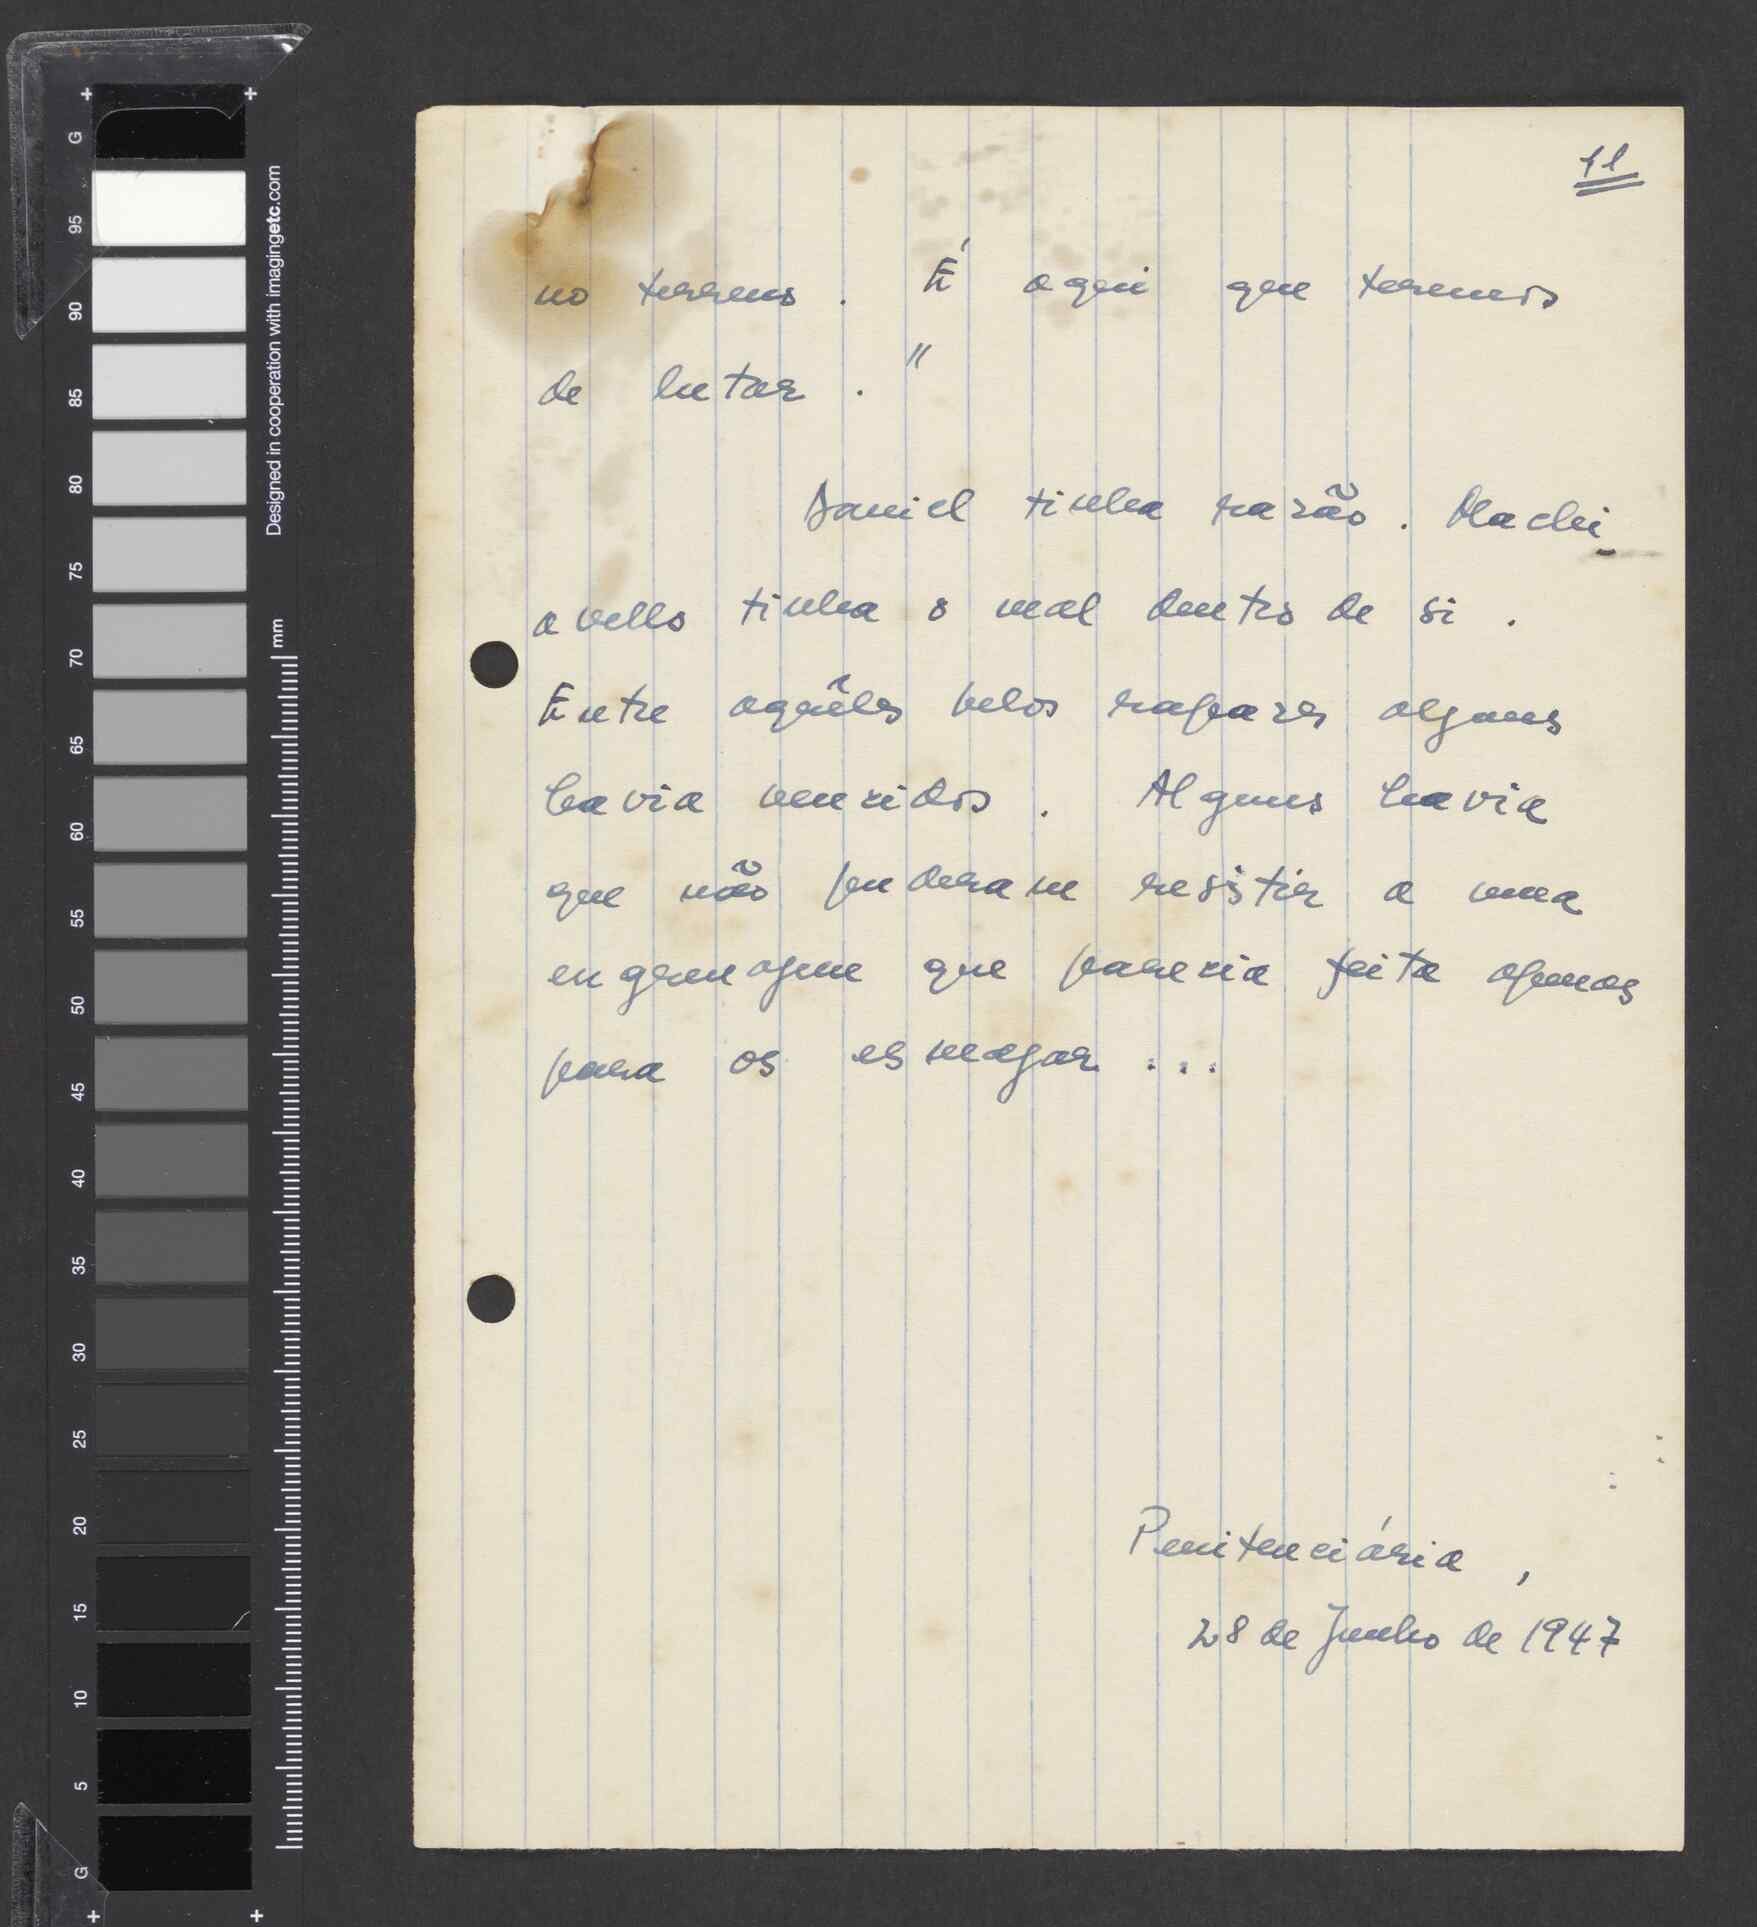 no terreno. É aqui que teremos
de lutar."
Daniel tinha razão. Machi-
avello tinha o mal dentro de si.
Entre aquêles belos rapazes alguns
havia vencidos. Alguns havia
que não puderam resistir a uma
engrenagem que parecia feita apenas
para os esmagar...
Penitenciária,
28 de Junho de 1947
Designed in cooperation with imagingetc.com
mm
G
95
90
85
80
75
70
65
60
55
50
45
40
35
30
25
20
15
10
5
G